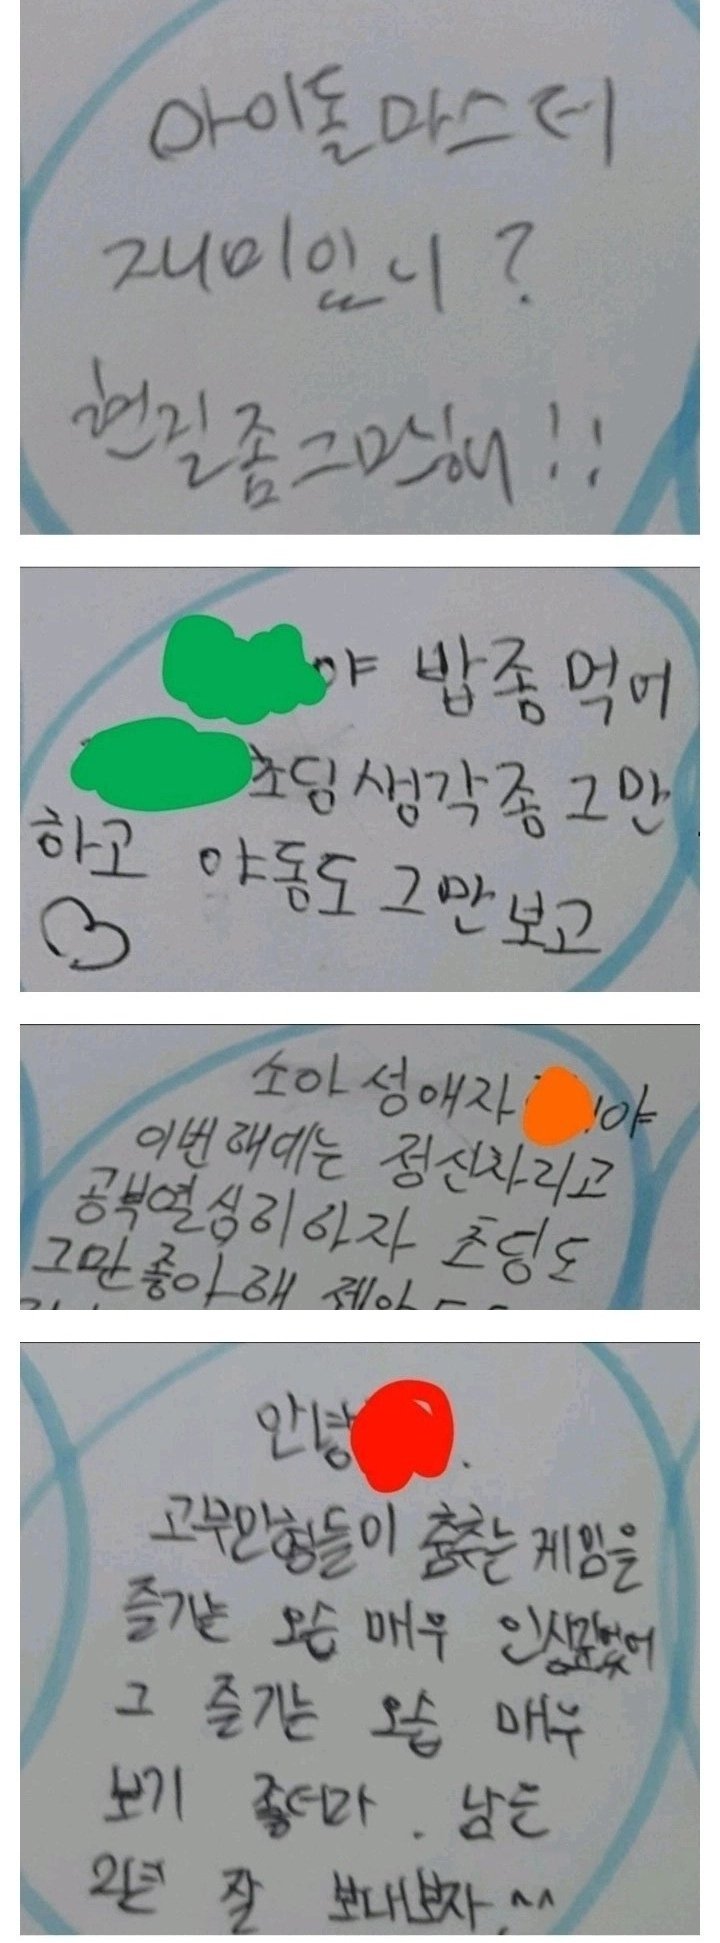 아이돌마스터
재미있니?
현질좀그만해!!
야 밥좀먹어
초딩생각좀그만
하고 야동도그만보고
소아성애자 야
이번해에는 정신차리고
공부열심히하자 초딩도
그만좋아해 제발
안녕 .
고부만형들이 춤추는게임을
즐기는 모습 매우 인상깊었어
그 즐기는 모습 매우
보기 좋더라. 남은
2년 잘 보내보자.^^